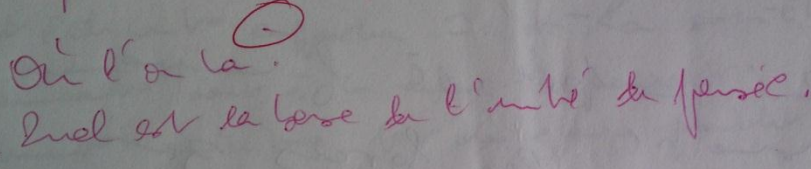 Où l'on la.
Quel est la base de l'unité de pensée.